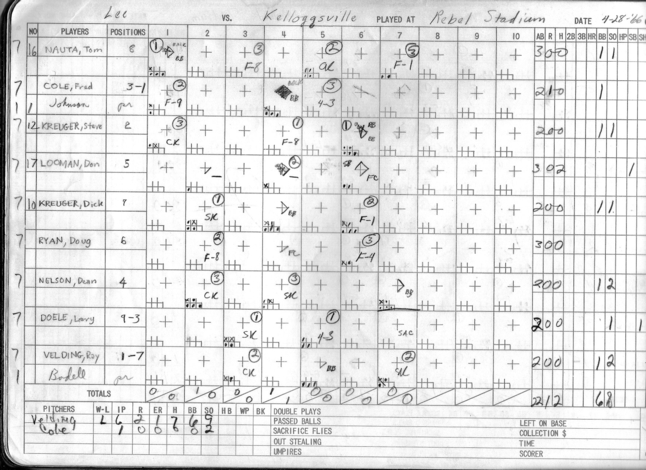 Lee VS. Kelloggsville PLAYED AT Rebel Stadium DATE 4-28-66
NO PLAYERS POSITIONS 1 2 3 4 5 6 7 8 9 10 AB R H 2B 3B HR BB SO HP SB SH
7 16 NAUTA, Tom 8 1 BB 3 F-8 2 CK F-1 3 0 0 1 1
7 COLE, Fred 3-1 2 BB 3 2 1 0 1
1 1 Johnson pr F-9 4-3
7 12 KREUGER, Steve 2 3 CK 1 F-8 1 BB 2 0 0 1 1
7 17 LOOMAN, Dan 5 2 FC 3 0 2 1
7 10 KREUGER, Dick 9 1 SK BB 2 F-1 2 0 0 1 1
7 RYAN, Doug 6 2 F-8 FC 3 F-4 3 0 0
7 NELSON, Dean 4 3 CK 3 SK BB 2 0 0 1 2
7 DOELE, Larry 9-3 1 SK 1 4-3 SAC 2 0 0 1 1
7 VELDING, Roy 1-7 2 CK BB 2 SK 2 0 0 1 2
1 Bodell pr
TOTALS 0/0 1/0 0/0 1/1 0/0 0/0 0/0 21 2 6 8
PITCHERS W-L IP R ER H BB SO HB WP BK DOUBLE PLAYS
Velding L 6 2 1 7 6 9 PASSED BALLS LEFT ON BASE
Cole 1 0 0 0 0 2 SACRIFICE FLIES COLLECTION $
OUT STEALING TIME
UMPIRES SCORER